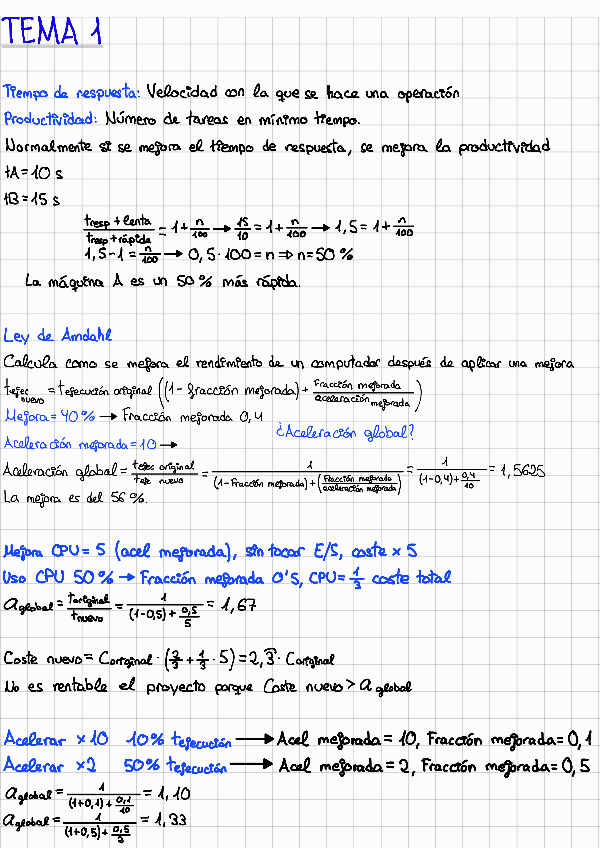 TEMA 1
Tiempo de respuesta: Velocidad con la que se hace una operación
Productividad: Número de tareas en mínimo tiempo.
Normalmente si se mejora el tiempo de respuesta, se mejora la productividad
tA = 10 s
tB = 15 s
tresp + lenta / tresp + rápida = 1 + n/100 → 15/10 = 1 + n/100 → 1,5 = 1 + n/100
1,5 - 1 = n/100 → 0,5 · 100 = n ⇒ n = 50 %
La máquina A es un 50 % más rápida.
Ley de Amdahl
Calcula como se mejora el rendimiento de un computador después de aplicar una mejora
tejec nuevo = tejecución original ((1 - fracción mejorada) + Fracción mejorada / aceleración mejorada)
Mejora = 40 % → Fracción mejorada 0,4
¿Aceleración global?
Aceleración mejorada = 10 →
Aceleración global = tejec original / teje nuevo = 1 / (1 - Fracción mejorada) + (Fracción mejorada / aceleración mejorada) = 1 / (1-0,4) + 0,4/10 = 1,5625
La mejora es del 56 %.
Mejora CPU = 5 (acel mejorada), sin tocar E/S, coste x 5
Uso CPU 50 % → Fracción mejorada 0'5, CPU = 1/3 coste total
aglobal = toriginal / tnuevo = 1 / (1-0,5) + 0,5/5 = 1,67
Coste nuevo = Coriginal · (2/3 + 1/3 · 5) = 2,3̂ · Coriginal
No es rentable el proyecto porque Coste nuevo > aglobal
Acelerar x10 10% tejecución → Acel mejorada = 10, Fracción mejorada = 0,1
Acelerar x2 50% tejecución → Acel mejorada = 2, Fracción mejorada = 0,5
aglobal = 1 / (1+0,1) + 0,1/10 = 1,10
aglobal = 1 / (1+0,5) + 0,5/2 = 1,33